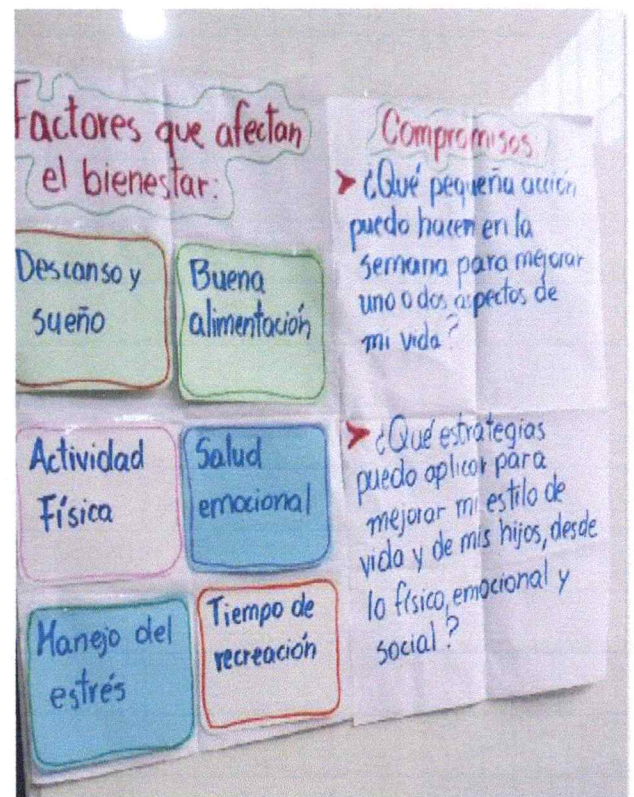 Factores que afectan
el bienestar:
Descanso y
sueño
Buena
alimentación
Actividad
Física
Salud
emocional
Manejo del
estrés
Tiempo de
recreación
Compromisos
➤ ¿Qué pequeña acción
puedo hacer en la
semana para mejorar
uno o dos aspectos de
mi vida?
➤ ¿Qué estrategias
puedo aplicar para
mejorar mi estilo de
vida y de mis hijos, desde
lo físico, emocional y
social?